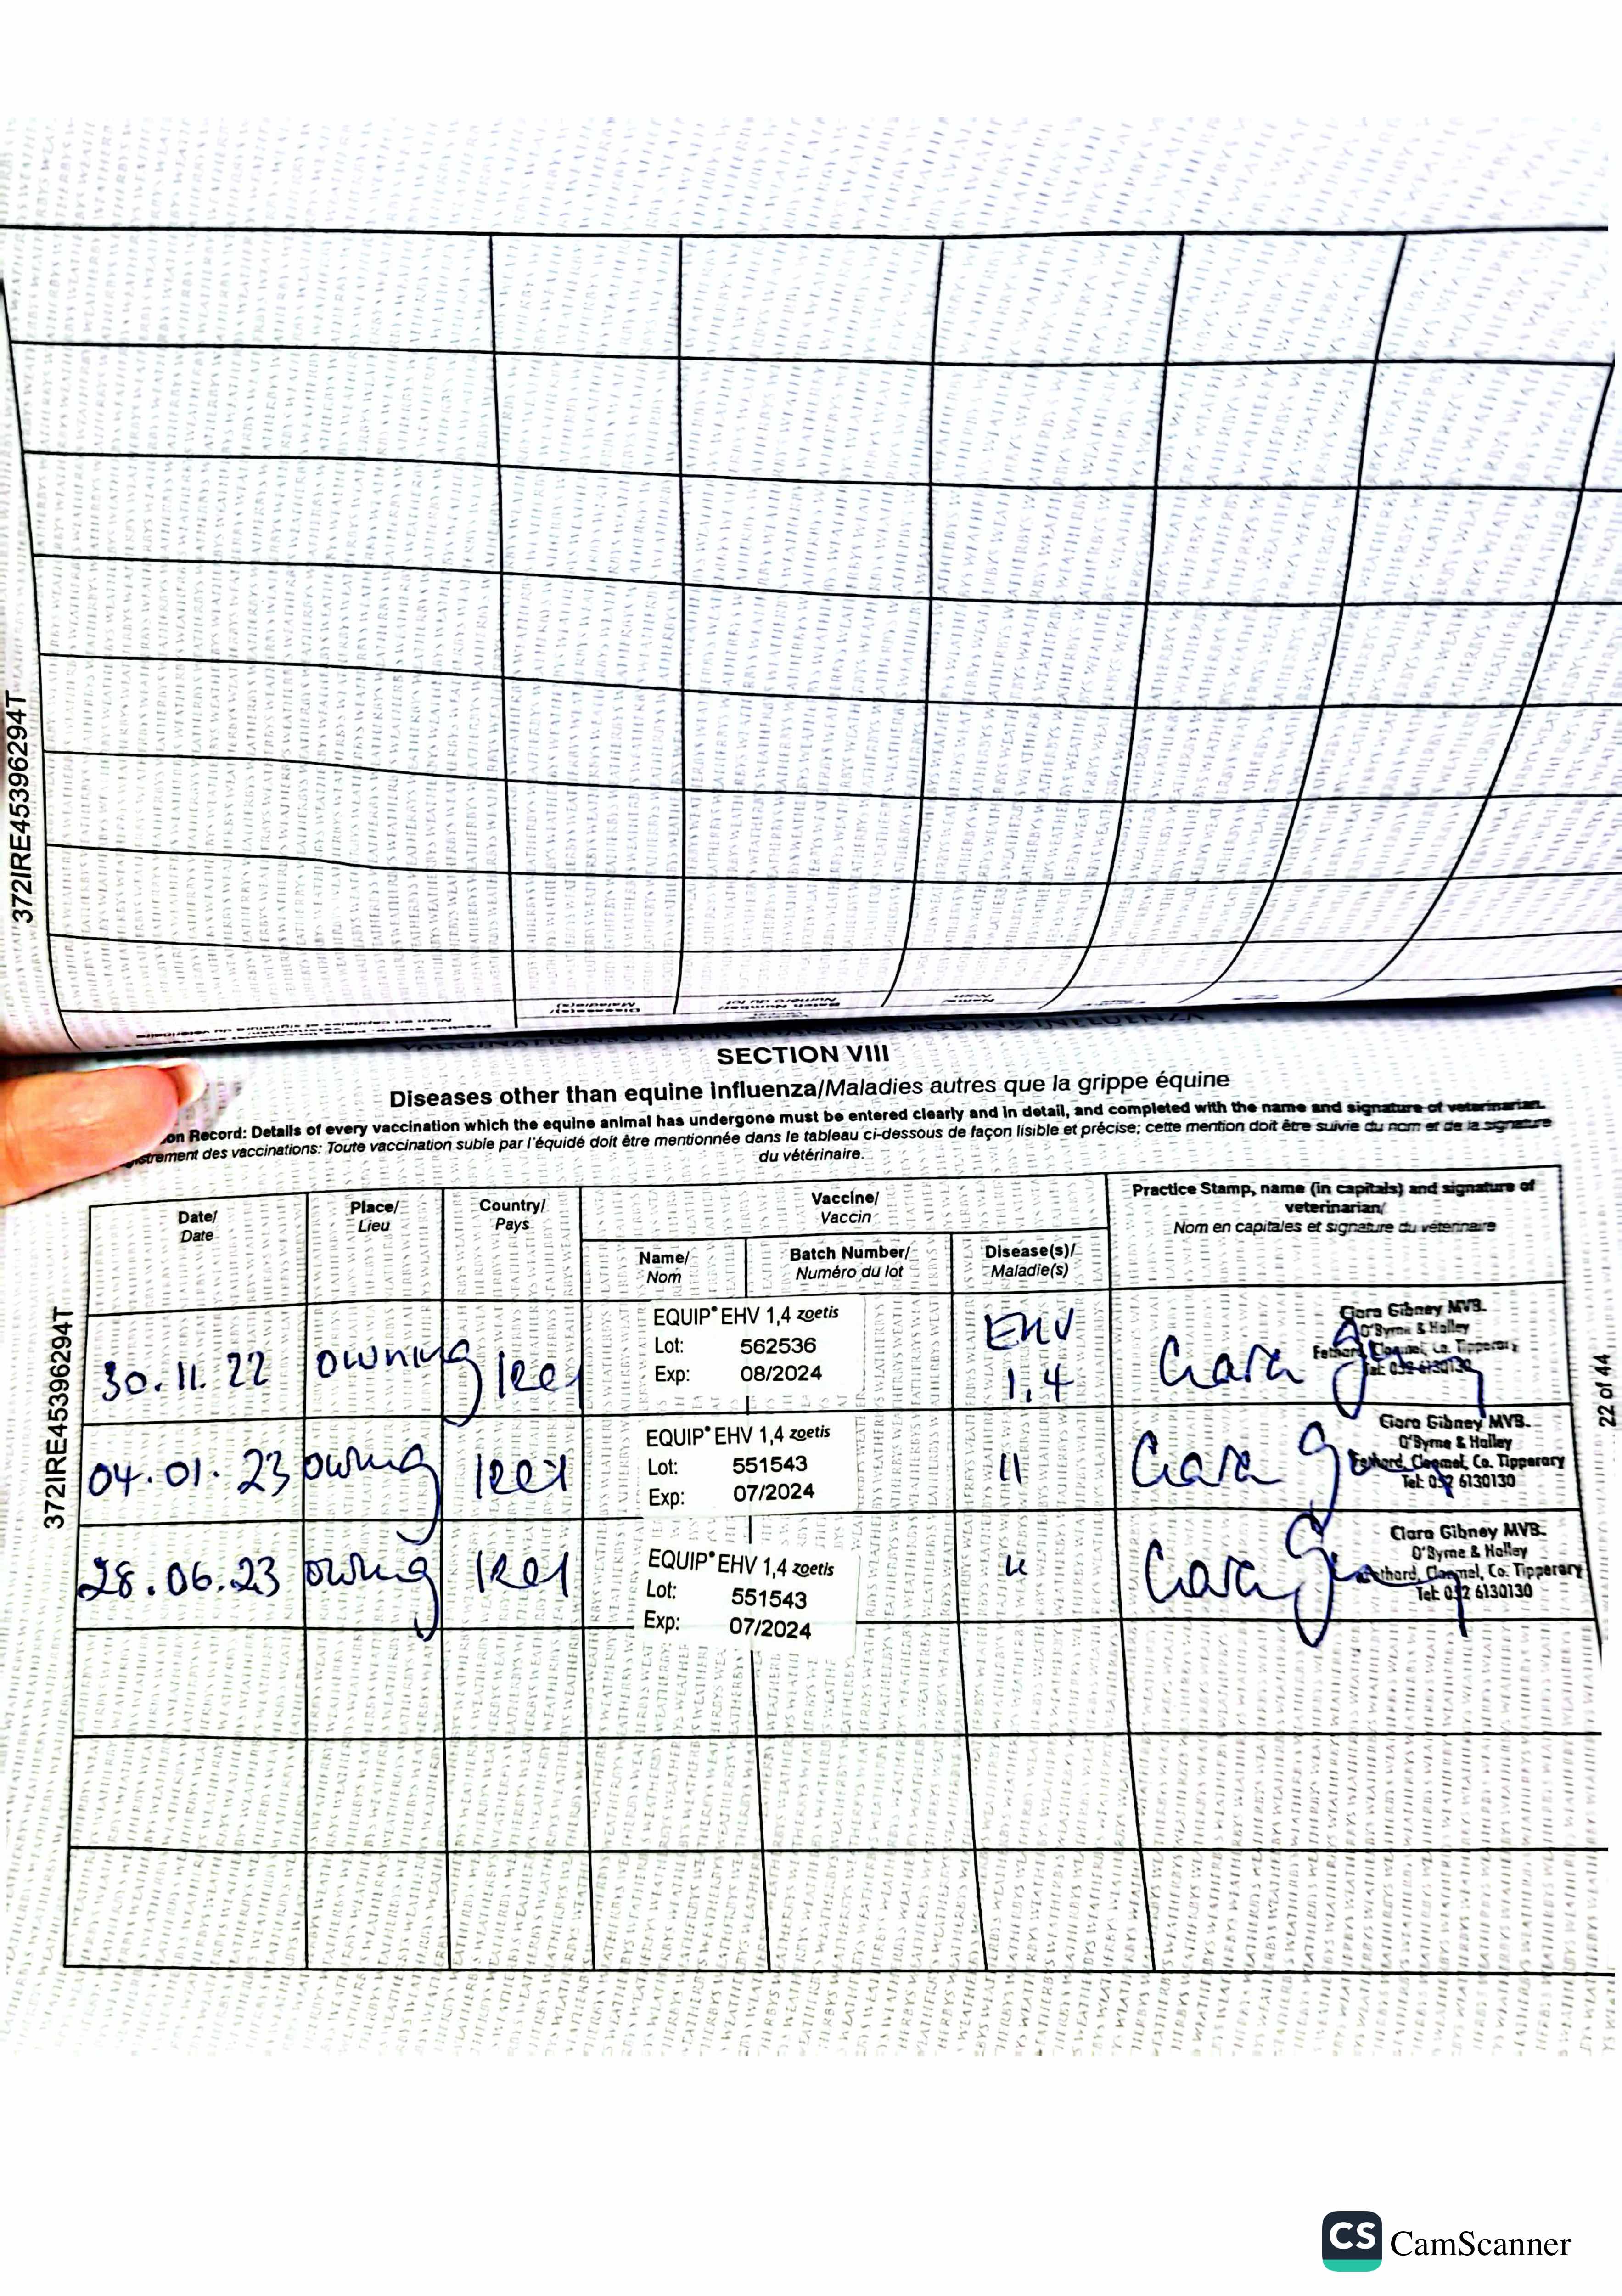 372IRE45396294T
SECTION VIII
Diseases other than equine influenza/Maladies autres que la grippe équine
on Record: Details of every vaccination which the equine animal has undergone must be entered clearly and in detail, and completed with the name and signature of veterinarian.
strement des vaccinations: Toute vaccination subie par l'équidé doit être mentionnée dans le tableau ci-dessous de façon lisible et précise; cette mention doit être suivie du nom et de la signature
du vétérinaire.
372IRE45396294T
Date/
Date
Place/
Lieu
Country/
Pays
Vaccine/
Vaccin
Name/
Nom
Batch Number/
Numéro du lot
Disease(s)/
Maladie(s)
Practice Stamp, name (in capitals) and signature of
veterinarian/
Nom en capitales et signature du vétérinaire
30.11.22
owning
Irel
EQUIP® EHV 1,4 zoetis
Lot: 562536
Exp: 08/2024
EHV
1,4
Ciara
Ciara Gibney MVB.
O'Byrne & Halley
Fethard, Clonmel, Co. Tipperary
Tel: 052 6130130
04.01.23
owning
Irel
EQUIP® EHV 1,4 zoetis
Lot: 551543
Exp: 07/2024
11
Ciara
Ciara Gibney MVB.
O'Byrne & Halley
Fethard, Clonmel, Co. Tipperary
Tel: 052 6130130
28.06.23
owning
Irel
EQUIP® EHV 1,4 zoetis
Lot: 551543
Exp: 07/2024
Ciara
Ciara Gibney MVB.
O'Byrne & Halley
Fethard, Clonmel, Co. Tipperary
Tel: 052 6130130
22 of 44
CS CamScanner